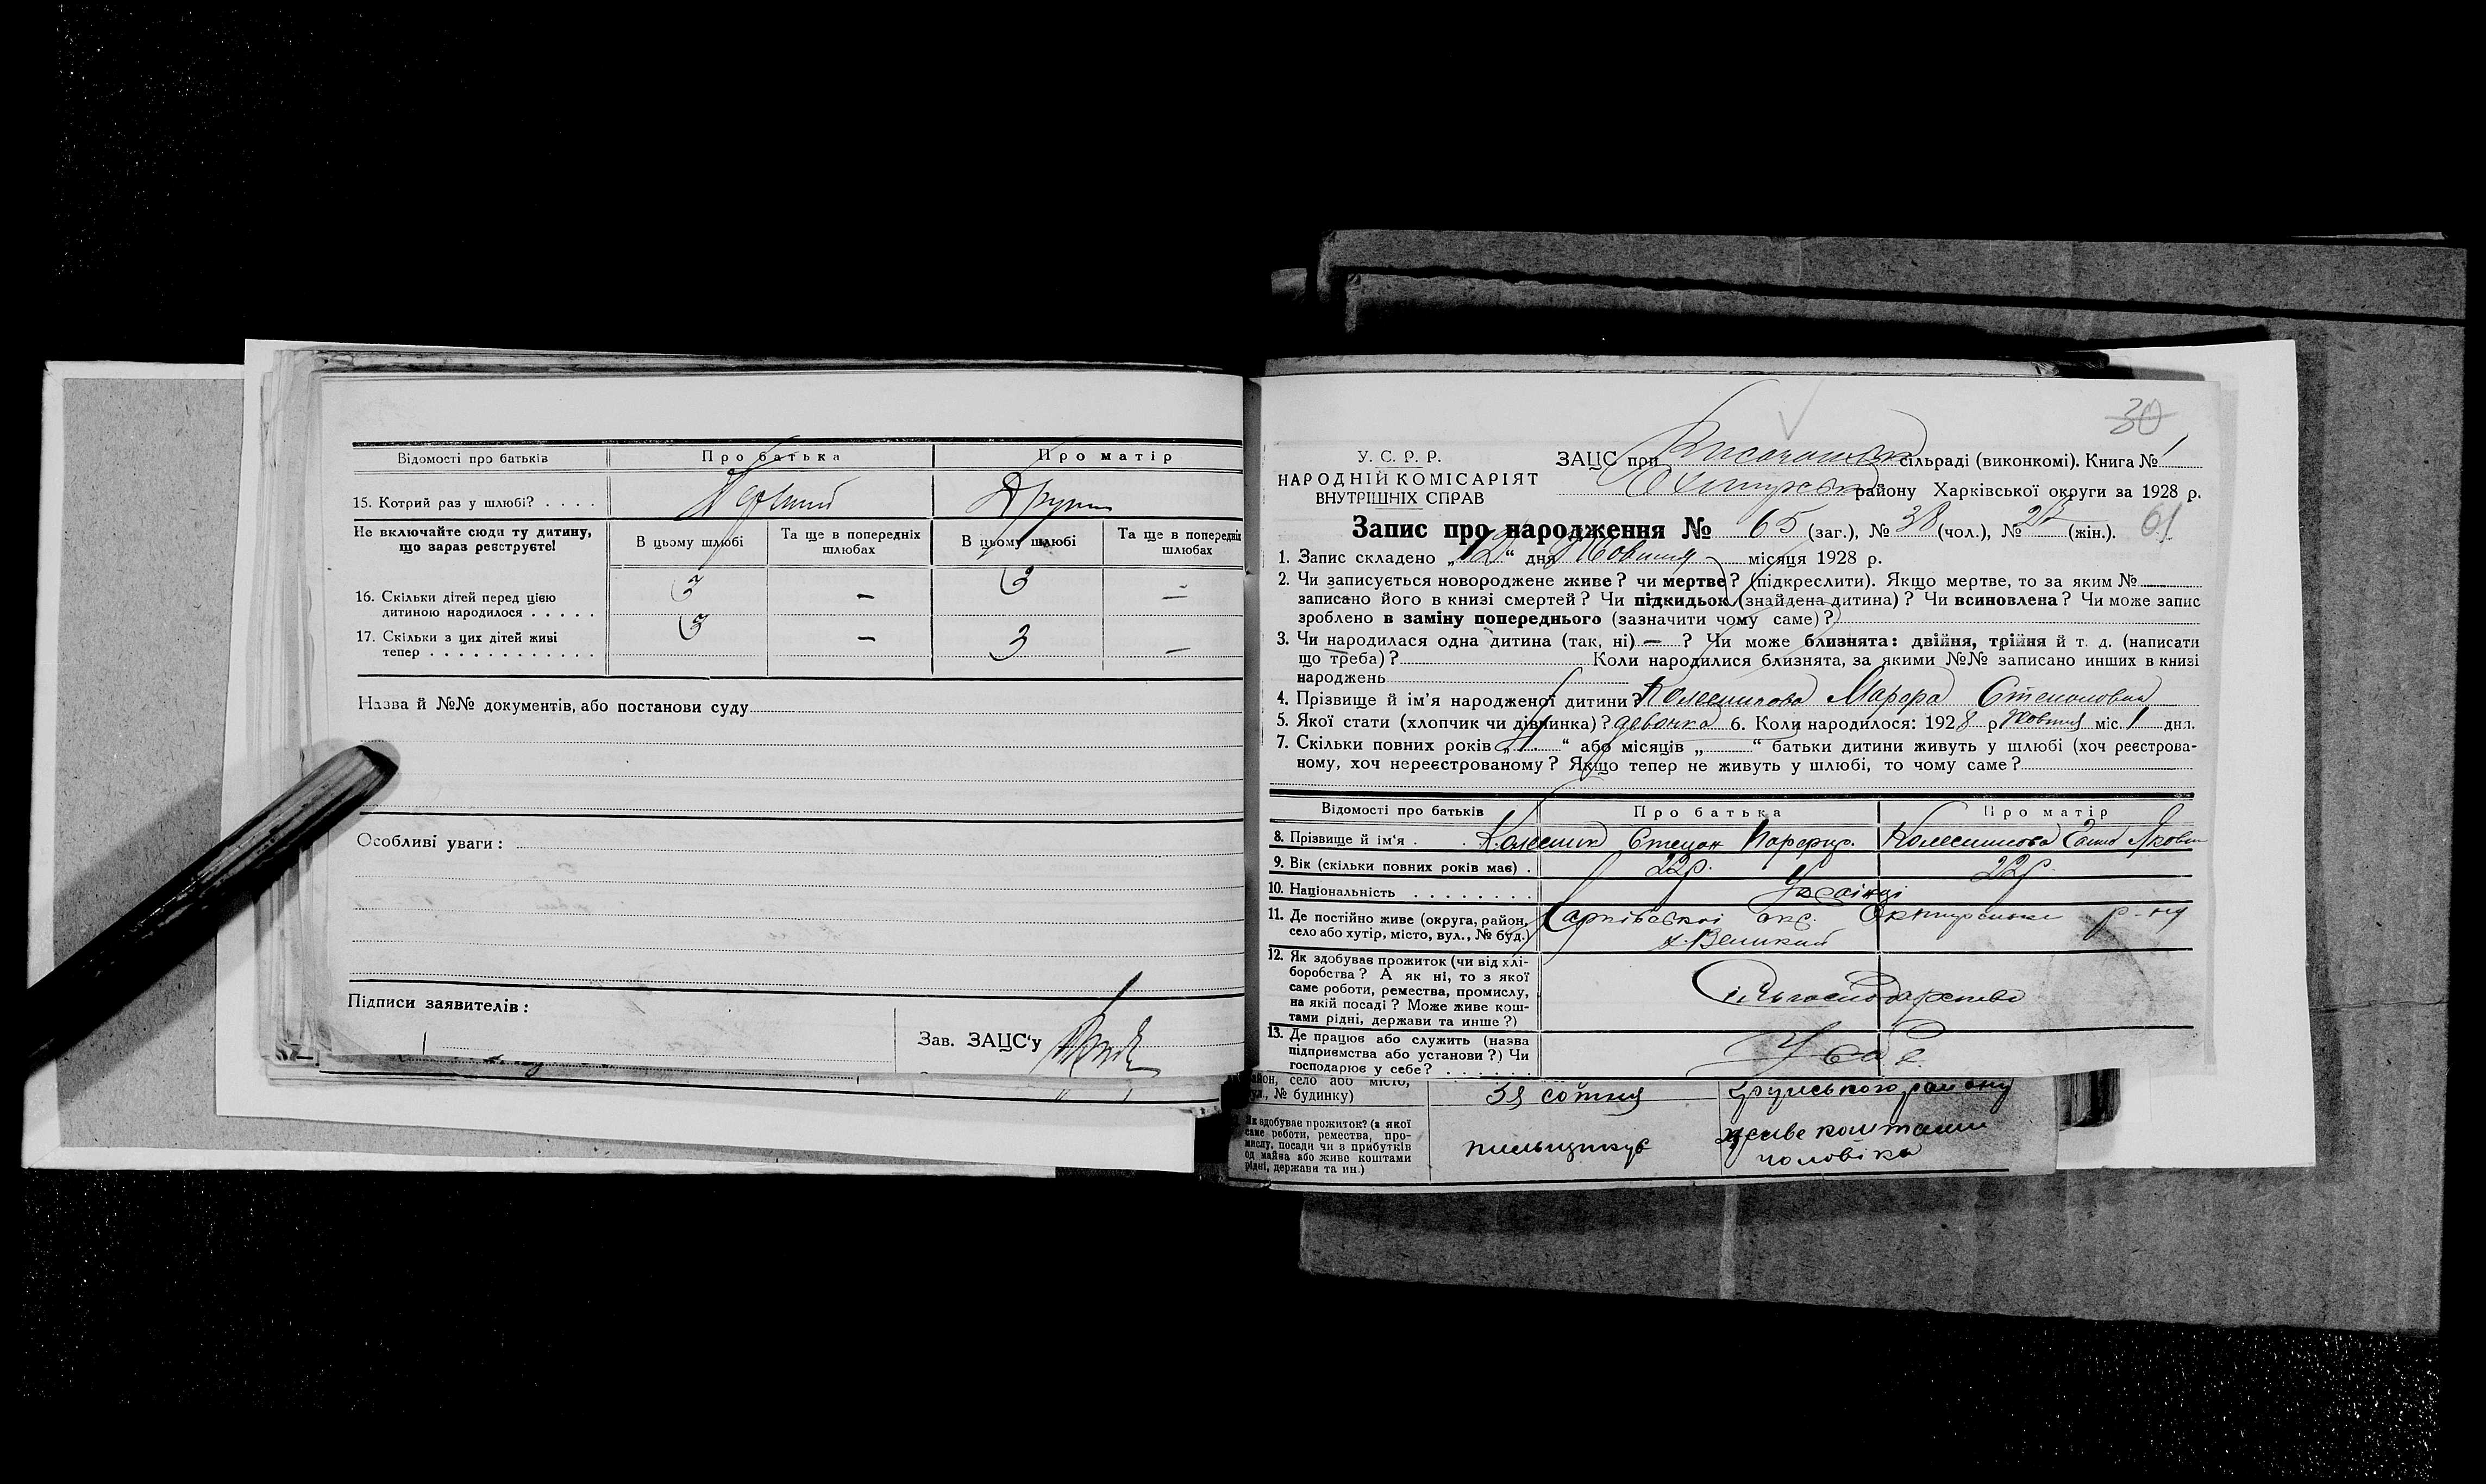 Відомості про батьків Про батька Про матір
15. Котрий раз у шлюбі? . . . . Первий Други
Не включайте сюди ту дитину, що зараз реєструєте!
В цьому шлюбі Та ще в попередніх шлюбах В цьому шлюбі Та ще в попередніх шлюбах
16. Скільки дітей перед цією
дитиною народилося . . . . . 3 — 3 —
17. Скільки з цих дітей живі
тепер . . . . . . . . . . . . 3 — 3 —
Назва й №№ документів, або постанови суду
Особливі уваги:
Підписи заявителів:
Зав. ЗАЦС'у
30
У. С. Р. Р.
НАРОДНІЙ КОМІСАРІЯТ
ВНУТРІШНІХ СПРАВ
ЗАЦС при сільраді (виконкомі). Книга № 1
району Харківської округи за 1928 р.
Запис про народження № 65 (заг.), № 38 (чол.), № (жін.). 61
1. Запис складено „12“ дня Жовтня місяця 1928 р.
2. Чи записується новороджене живе? чи мертве? (підкреслити). Якщо мертве, то за яким №
записано його в книзі смертей? Чи підкидьок (знайдена дитина)? Чи всиновлена? Чи може запис
зроблено в заміну попереднього (зазначити чому саме)?
3. Чи народилася одна дитина (так, ні) — ? Чи може близнята: двійня, трійня й т. д. (написати
що треба)? Коли народилися близнята, за якими №№ записано инших в книзі
народжень
4. Прізвище й ім'я народженої дитини? Колесникова Марфа Степановна
5. Якої стати (хлопчик чи дівчинка)? девочка 6. Коли народилося: 1928 р Жовтня міс. 1 дня.
7. Скільки повних років „ “ або місяців „ “ батьки дитини живуть у шлюбі (хоч реєстрова-
ному, хоч нереєстрованому? Якщо тепер не живуть у шлюбі, то чому саме?
Відомості про батьків Про батька Про матір
8. Прізвище й ім'я . . Колесник Степан Колесникова Яковл
9. Вік (скільки повних років має) . 22р. 22р.
10. Національність . . . . . . . .
11. Де постійно живе (округа, район,
село або хутір, місто, вул., № буд.) Харківської окр. р-ну
х. Великий
12. Як здобуває прожиток (чи від хлі-
боробства? А як ні, то з якої
саме роботи, ремества, промислу,
на якій посаді? Може живе кош-
тами рідні, держави та инше?)
13. Де працює або служить (назва
підприємства або установи?) Чи
господарює у себе? . . . . . . У себе
район, село або місто,
вул., № будинку) 3я сотня району
Як здобуває прожиток? (з якої
саме роботи, ремества, про-
мислу, посади чи з прибутків
од майна або живе коштами
рідні, держави та ин.) пильщикує живе коштами
чоловіка